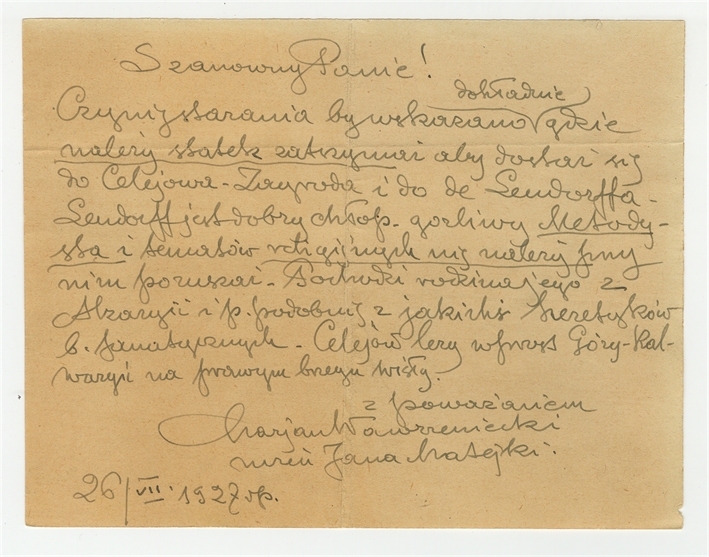 Szanowny Panie!
dokładnie
Czynię starania by wskazano gdzie
należy statek zatrzymać aby dostać się
do Celejowa-Zagroda i do de Lendorffa-
Lendorff jest dobry chłop- gorliwy Metody-
sta i tematów religijnych nie należy przy
nim poruszać- Pochodzi rodzina jego z
i p. podobnie z jakichś heretyków
b. fanatycznych- Celejów leży wprost Góry-Kal-
waryii na prawym brzegu Wisły.
z poważaniem
Marjan Wawrzeniecki
uczeń Jana Matejki.
26/VII. 1927 rp.